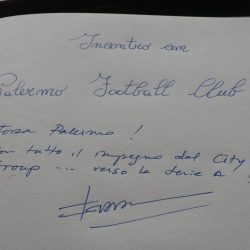 Incontro con
Palermo Football Club
Forza Palermo !
con tutto il impegno dal City
Group ... verso la Serie A